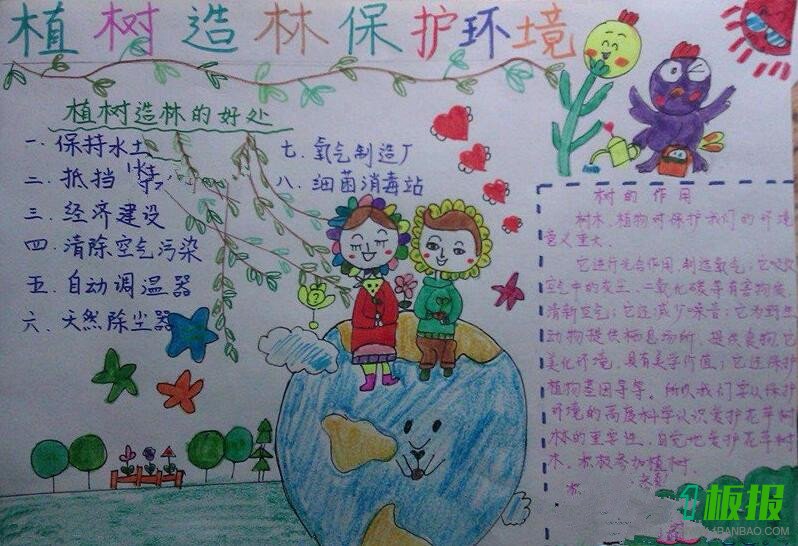 植树造林保护环境
植树造林的好处
一、保持水土
二、抵挡
三、经济建设
四、清除空气污染
五、自动调温器
六、天然除尘器
七、氧气制造厂
八、细菌消毒站
树的作用
树木、植物对保护我们的环境
意义重大。
它进行光合作用,制造氧气;它吸收
空气中的灰尘、二氧化碳等有害物质,
清新空气;它还减少噪音;它为野生
动物提供栖息场所,提供食物;它
美化环境,具有美学价值;它还保护
植物基因等等。所以我们要从保护
环境的高度科学认识爱护花草树
林的重要性,自觉地爱护花草树
木,积极参加植树
板报